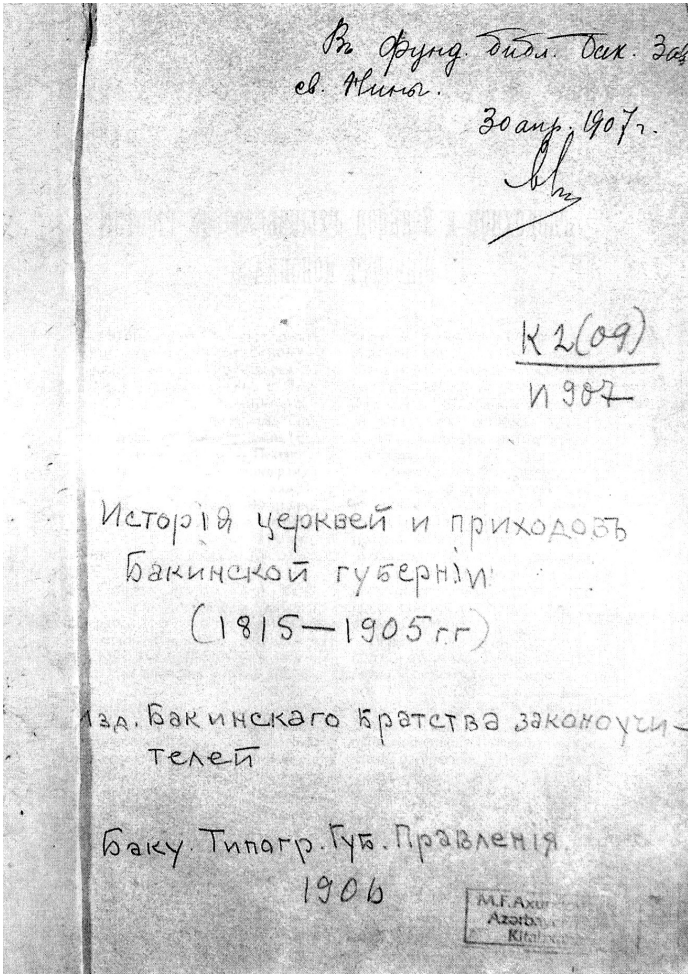 Въ фунд. библ. Бак. Зав
св. Нины.
30 апр. 1907 г.
К 2(09)
И 907
Исторія церквей и приходовъ
Бакинской губерніи
(1815—1905 г.г)
Изд. Бакинскаго Братства законоучи-
телей
Баку. Типогр. Губ. Правленія.
1906
M.F.Axun
Azərbay
Kitabxa